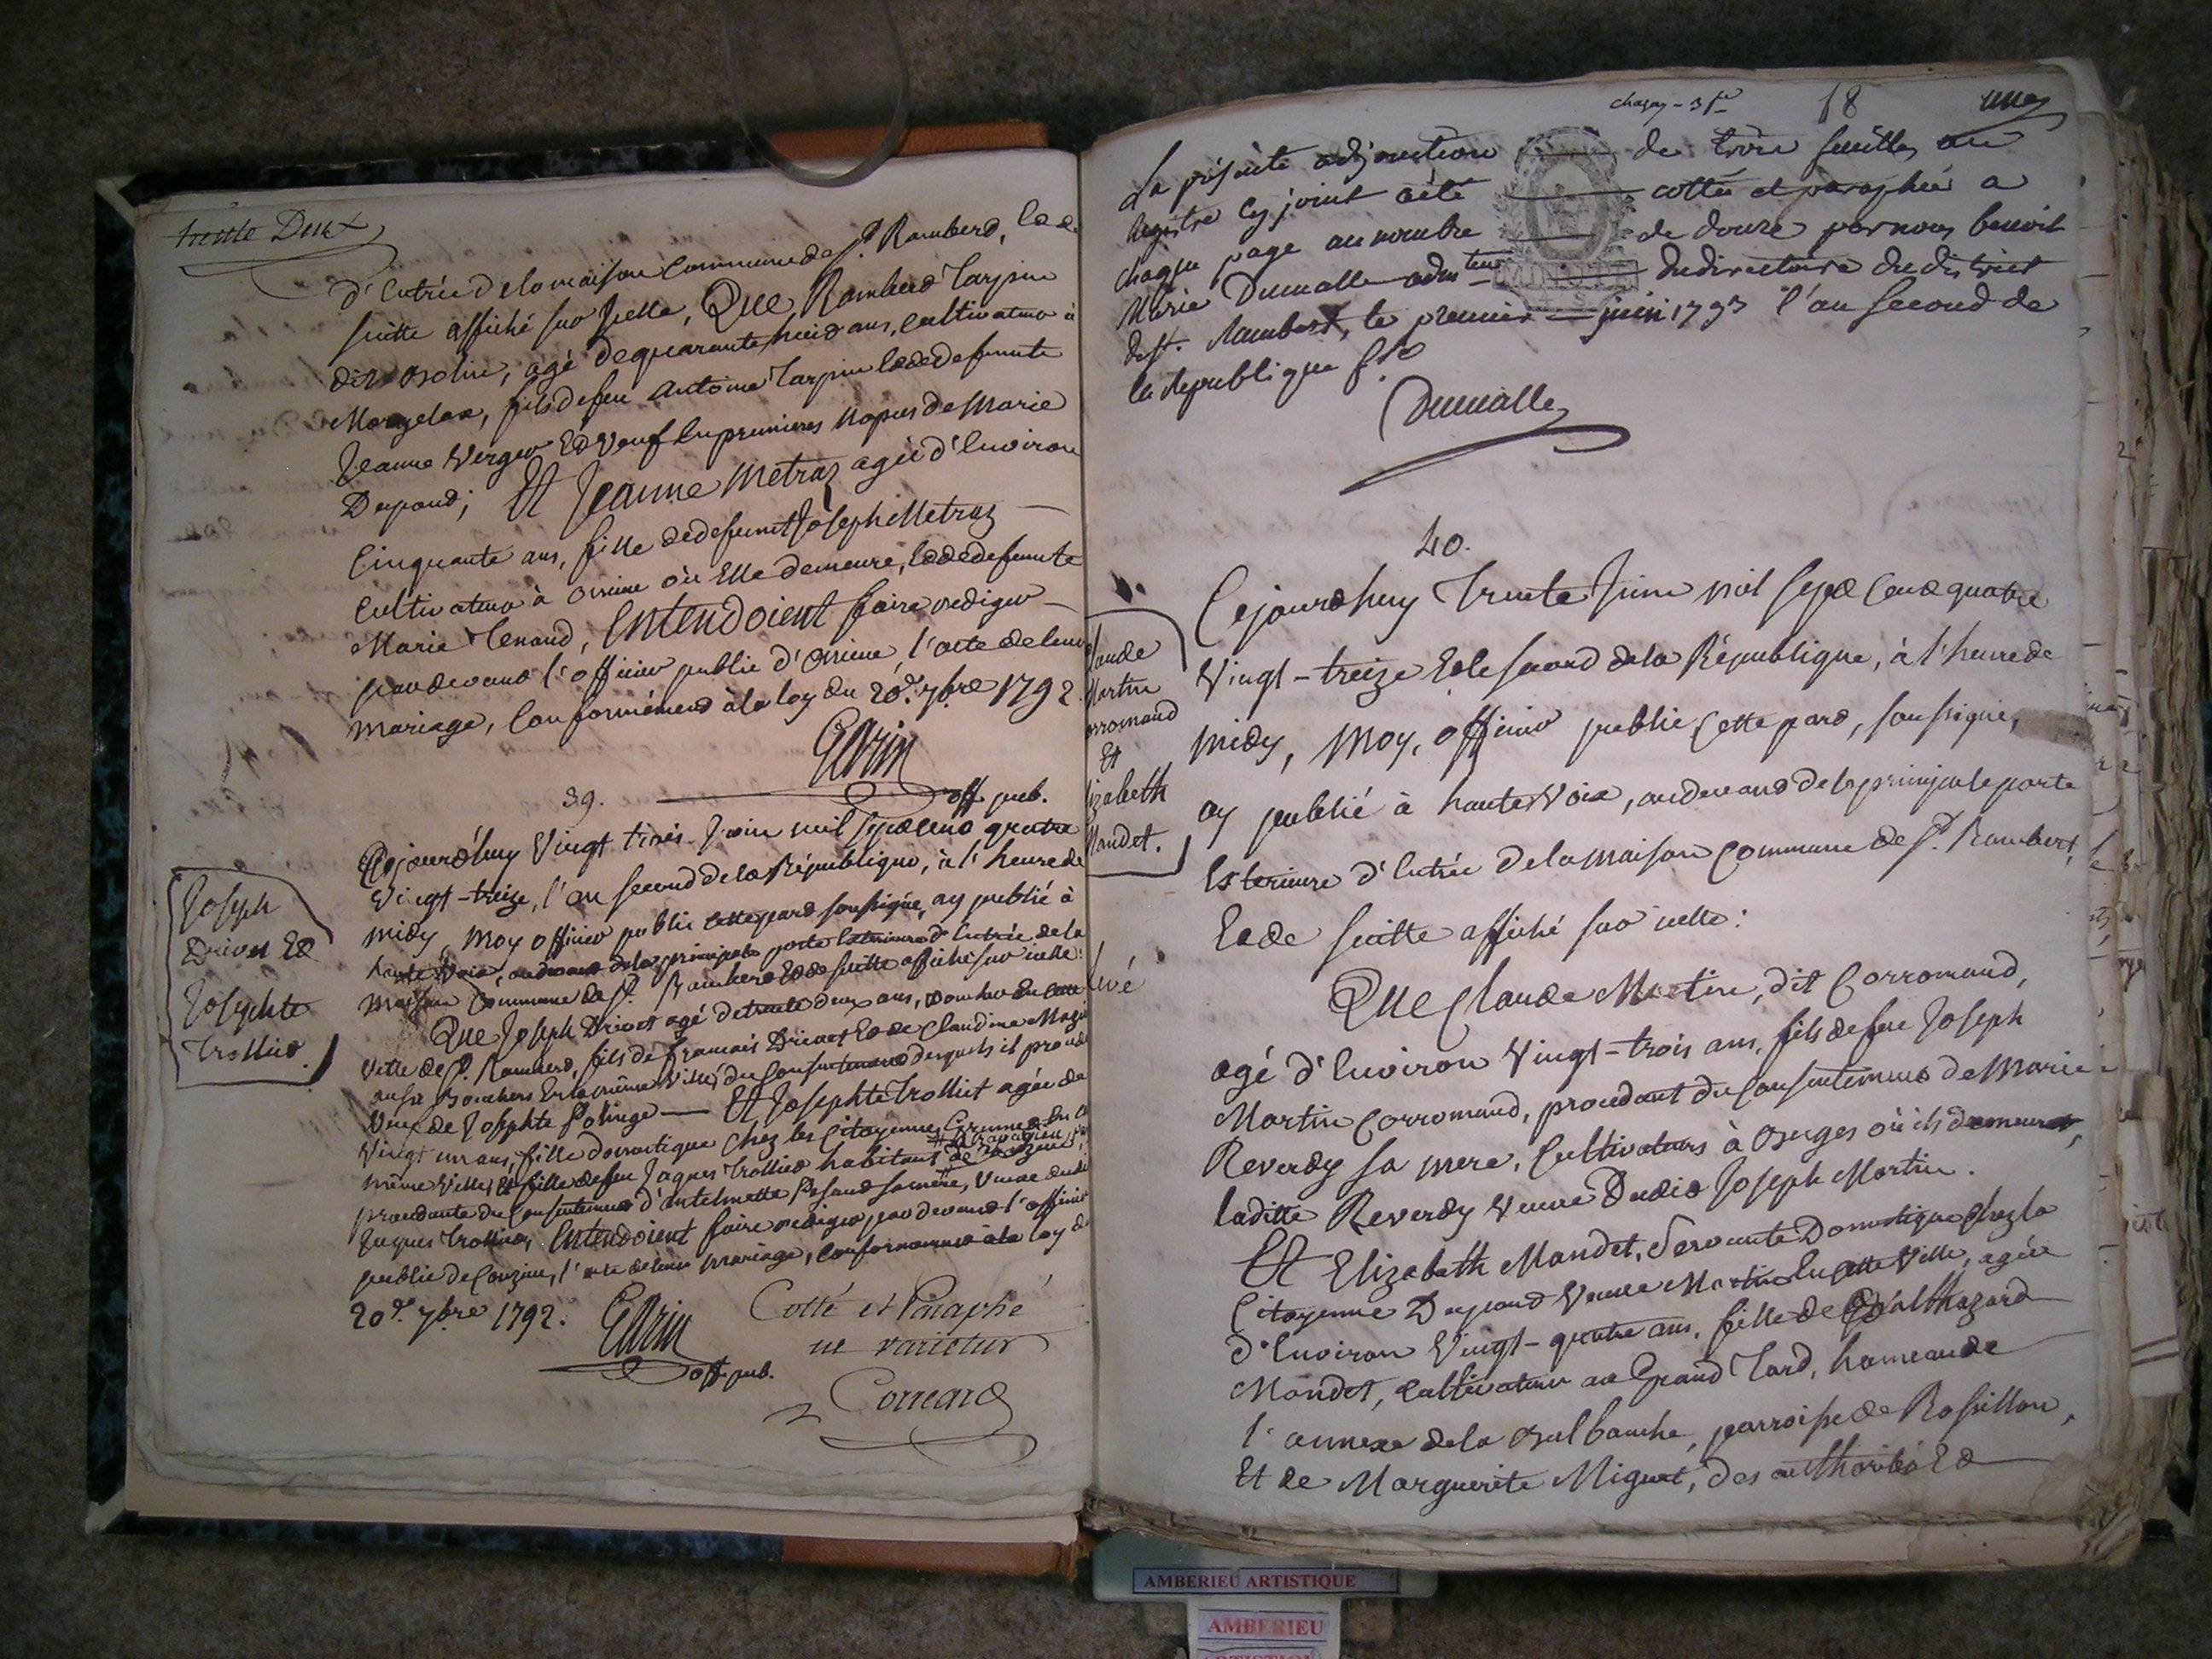 trente Deux
d'Entrée de la maison Commune de St. Rambert, Et de
suitte affiché sur Icelle, Que Rambert Tarpin
dit , agé de quarante huit ans, cultivateur à
Morgelaz, fils de feu Antoine Tarpin Et de defunte
Jeanne Verger Et Veuf En premieres nopces de Marie
Dupond; Et Jeanne Metraz agée d'Environ
Cinquante ans, fille de defunt Joseph Metraz
Cultivateur à où Elle demeure, Et de defunte
Marie Tenand, Entendoient faire rediger
pardevant l'officier public d' l'acte de leur
mariage, Conformément à la loy du 20e. 7bre 1792.
off. pub.
39.
Joseph
Drivet Et
Josephte
Trolliet.
Cejourd'huy Vingt trois Juin mil sept cent quatre
Vingt-treize, l'an second de la République, à l'heure de
midy, Moy officier public Cette part soussigné, ay publié à
haute Voix, au devant de la principale porte Exterieure d'Entrée de la
maison Commune de St. Rambert Et de suitte affiché sur icelle:
Que Joseph Drivet agé de trente deux ans, Boucher En cette
Ville de St. Rambert, fils de François Drivet Et de Claudine
aussi Bouchers En la même Ville, du Consentement desquels il procede
Veuf de Josephte Et Josephte Trolliet agée de
Vingt un ans, fille domestique Chez les Citoyennes En la
même Ville, Et fille de feu Jaques Trolliet habitant
procedante du Consentement d'Antelmette sa mere, Veuve dudit
Jaques Trolliet, Entendoient faire rediger par devant l'officier
public de , l'acte de leur mariage, Conformement à la loy du
20e. 7bre 1792.
off. pub.
Cotté et Paraphé
ne varietur
18
La présente adjonction de trois feuilles au
Registre cy joint a été cottée et paraphée a
chaque page au nombre de douze par nous benoit
MINUTE
Marie Dumalle du directoire du district
de St. Rambert, le premier juin 1793 l'an second de
la Republique
Dumalle
40.
Claude
Martin
Corromand
Et
Elizabeth
Mandet.
Cejourd'huy Trente Juin mil sept Cent quatre
Vingt-treize Et le second de la République, à l'heure de
midy, Moy, officier public Cette part, soussigné,
ay publié à haute Voix, au devant de la principale porte
Exterieure d'Entrée de la maison Commune de St. Rambert,
Et de suitte affiché sur icelle:
Que Claude Martin, dit Corromand,
agé d'Environ Vingt-trois ans, fils de feu Joseph
Martin Corromand, procedant du Consentement de Marie
Reverdy sa mere, Cultivateurs à où ils demeurent,
laditte Reverdy Veuve Dudit Joseph Martin.
Et Elizabeth Mandet, Servante Domestique chez la
Citoyenne Dupond Veuve Martin En cette Ville, agée
d'Environ Vingt-quatre ans, fille de Balthazard
Mandet, cultivateur au Grand Tard, hameau de
l'annexe de la Balbanche, parroisse de Rossillon,
Et de Marguerite Miguet, des authorité Et
AMBERIEU ARTISTIQUE
AMBERIEU